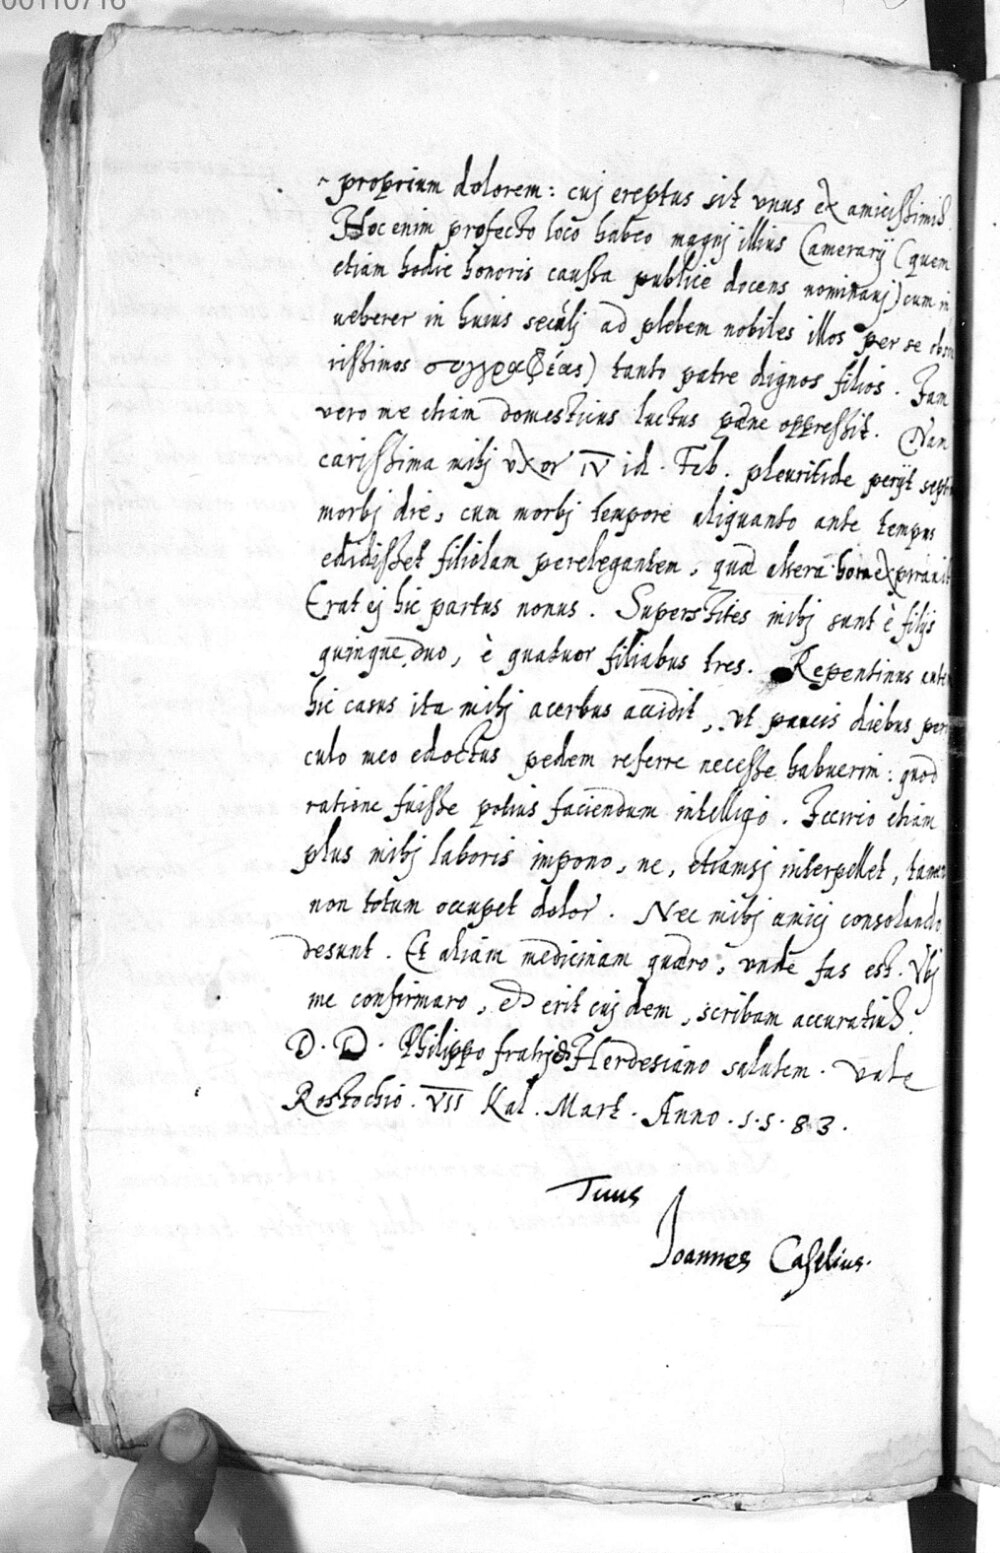 00110716
proprium dolorem: cuj ereptus sit vnus ex amicissimis.
Hoc enim profecto loco habeo magnj illius Camerarij (quem
etiam hodie honoris caussa publice docens nominauj) cum in
ueherer in huius seculj ad plebem nobiles illos per se obscu
rissimos συγγραφέας) tanto patre dignos filios. Jam
vero me etiam domesticus luctus pæne oppressit. Nam
carissima mihj vxor IV id. Feb. pleuritide perijt septi
morbj die, cum morbj tempore aliquanto ante tempus
edidisset filiolam perelegantem, quæ altera hora expirauit
Erat ej hic partus nonus. Superstites mihj sunt è filijs
quinque duo, è quatuor filiabus tres. Repentinus autem
hic casus ita mihj acerbus accidit, vt paucis diebus peri
culo meo edoctus pedem referre necesse habuerim: quod
ratione fuisse potius faciendum intelligo. Itcirco etiam
plus mihj laboris impono, ne, etiamsj interpellet, tamen
non totum occupet dolor. Nec mihj amicj consolando
desunt. Et aliam medicinam quæro, vnde fas est. Vbj
me confirmaro, et erit cuj dem, scribam accuratius.
D. D. Philippo fratrj Herdesiano salutem. Vale
Rostochio. VII Kal. Mart. Anno. 1583.
Tuus
Joannes Caselius.